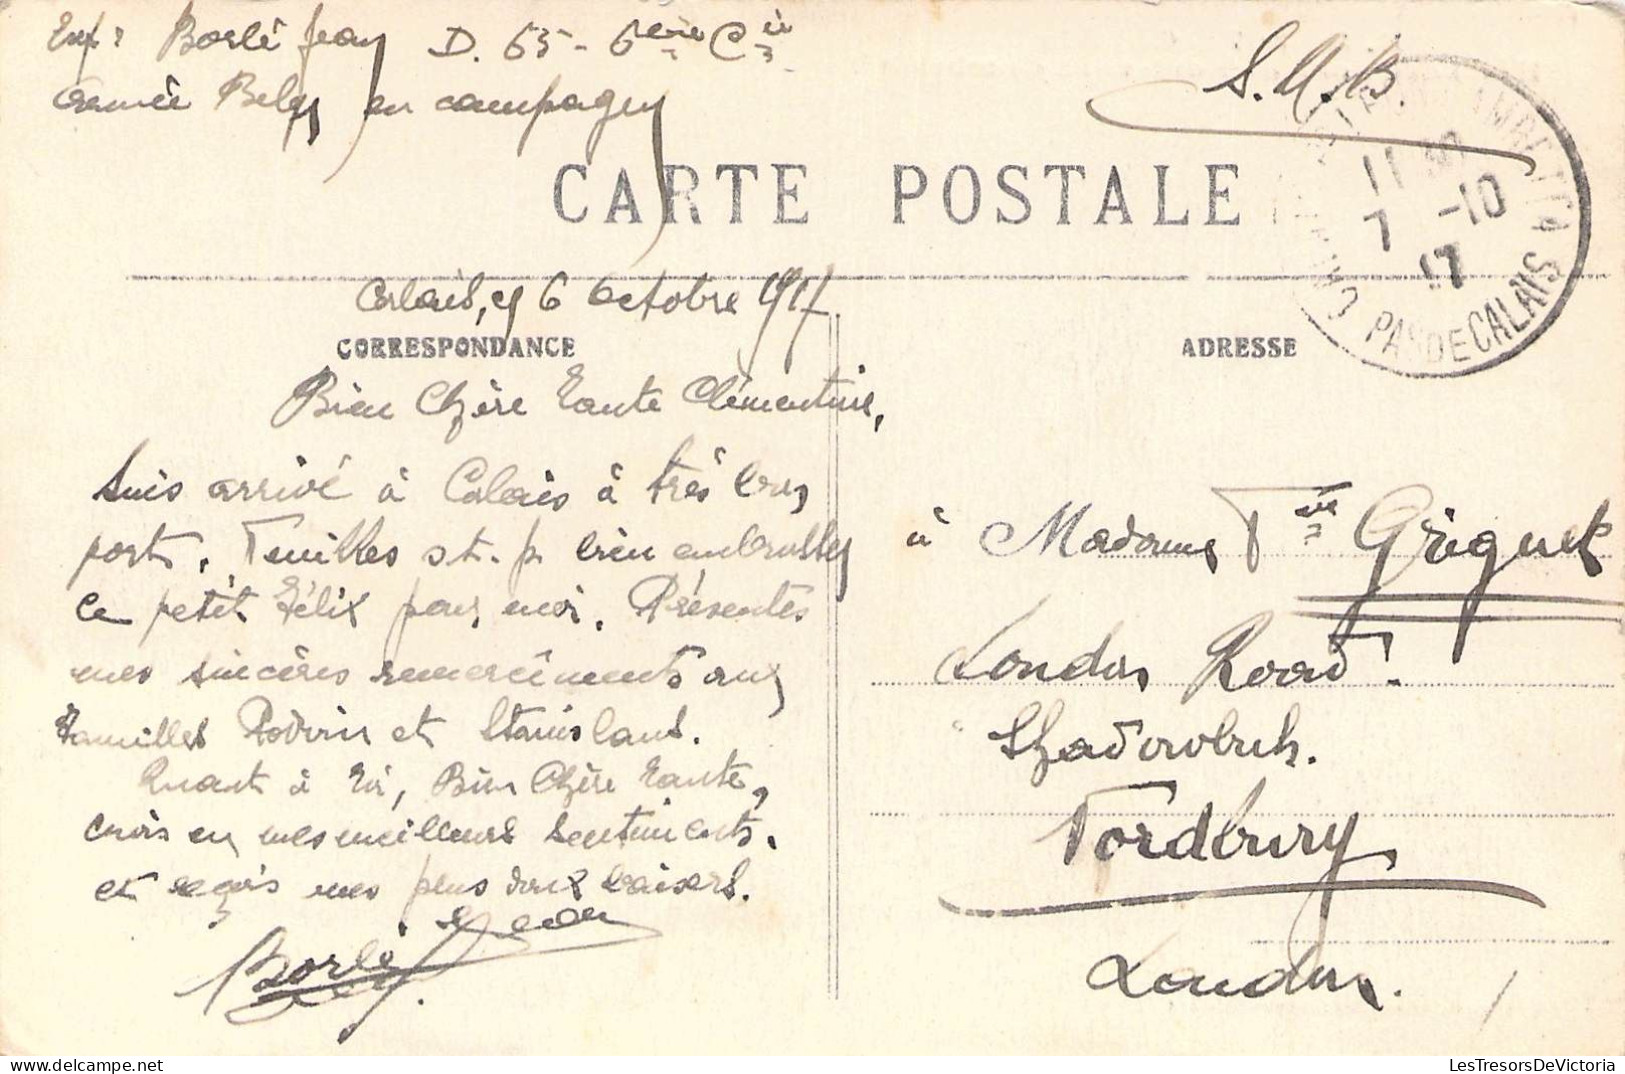 Exp: Borlé Jean D. 65 - 6ème Cie
S.M.B.
Armée Belge en campagne
CARTE POSTALE
11 30
7 -10
17
PAS DE CALAIS
Calais, le 6 Octobre 1917.
CORRESPONDANCE
ADRESSE
Bien Chère Tante Clémentine,
Suis arrivé à Calais à très bon
port. Veuilles s.t.p. bien embrasser
le petit Félix pour moi. Présentes
mes sincères remerciments aux
familles Rodvin et Stanislaus.
Quant à toi, Bien Chère Tante,
crois en mes meilleurs sentiments.
et reçois mes plus doux baisers.
Jean
Borlé
à Madame Vve Grignet
London Road.
Fordbury
London.
LesTresorsDeVictoria